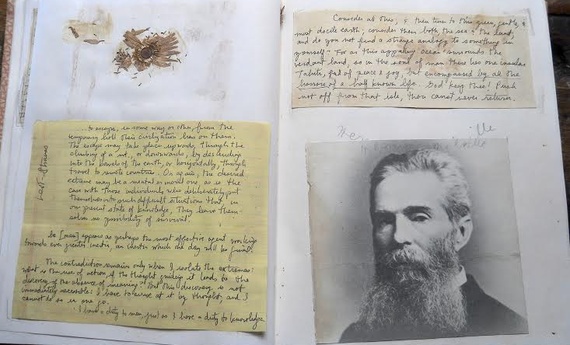 to escape, in some way or other, from the
temporary hold their civilization has on them.
The escape may take place upwards, through the
climbing of a mt., or downwards, by descending
into the bowels of the earth, or horizontally, through
travel to remote countries. Or again, the desired
extreme may be a mental or moral one, as is the
case with those individuals who deliberately put
themselves into such difficult situations that, in
our present state of knowledge, they leave them-
selves no possibility of survival.
So [man] appears as perhaps the most effective agent working
towards even greater inertia, in which one day will be final.
The contradiction remains only when I isolate the extremes:
what is the use of action, if the thought guiding it leads to the
discovery of the absence of meaning? But this discovery is not
immediately accessible: I have to arrive at it by thought, and I
cannot do so in one go.
I have a duty to men, just as I have a duty to knowledge.
Levi-Strauss
Consider all this; & then turn to this green, gentle, &
most docile earth; consider them both, the sea & the land;
and do you not find a strange analogy to something in
yourself? For as this appalling ocean surrounds the
verdant land, so in the soul of man there lies one insular
Tahiti, full of peace & joy, but encompassed by all the
horrors of a half known life. God keep thee! Push
not off from that isle, thou canst never return.